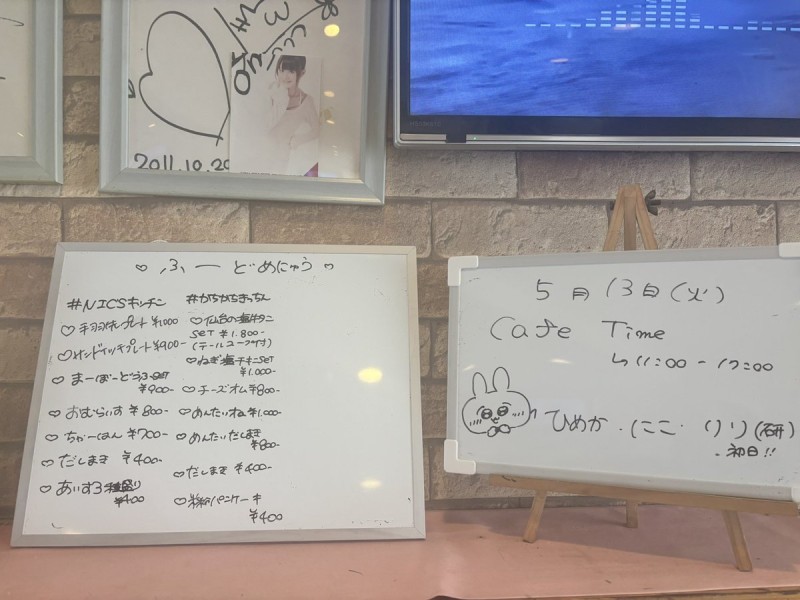 2011.10.20
♡ ふーどめにゅう ♡
#NICSキッチン
♡手羽先プレート ¥1000
♡サンドイッチプレート¥900-
♡まーぼーどうふSET
¥900-
♡おむらいす ¥800-
♡ちゃーはん ¥700-
♡だしまき ¥400-
♡あいす3種盛り
¥400
#かちかちきっちん
♡仙台の塩牛タン
SET ¥1.800-
(テールスープ付)
♡ねぎ塩チキンSET
¥1.000-
♡チーズオム¥800-
♡めんたいオム¥1.000-
♡めんたいだしまき
¥800-
♡だしまき ¥400-
パンケーキ
¥400
5月13日(火)
Cafe Time
↳11:00-17:00
ひめか・ここ・りり(研)
初日!!